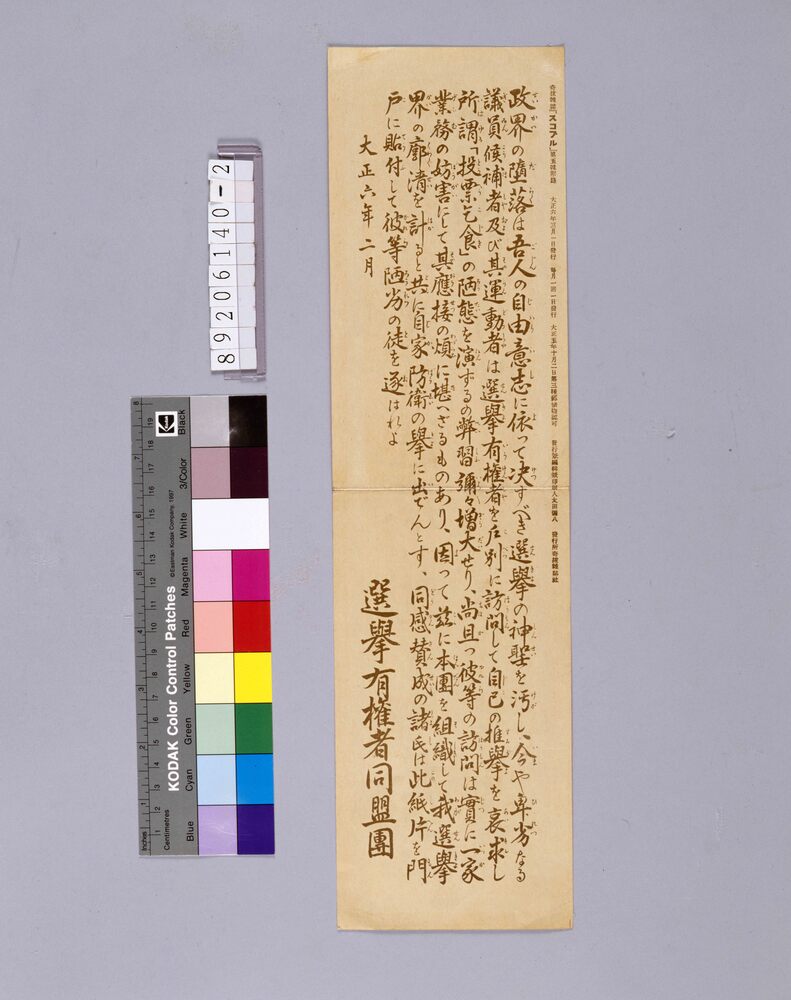 奇抜雑誌『スコブル』第五號附録 大正六年三月一日發行 毎月一回一日發行 大正五年十月二日第三種郵便物認可 發行兼編輯兼印刷人太田彌八 發行所奇抜雑誌社
政界の墮落は吾人の自由意志に依って決すべき選擧の神聖を汚し、今や卑劣なる
議員候補者及び其運動者は選擧有權者を戸別に訪問して自己の推擧を哀求し
所謂「投票乞食」の陋態を演ずるの弊習彌々増大せり、尚且つ彼等の訪問は實に一家
業務の妨害にして其應接の煩に堪へざるものあり、因って玆に本團を組織して我選擧
界の廓清を計ると共に自家防衛の擧に出でんとす、同感賛成の諸氏は此紙片を門
戸に貼付して彼等陋劣の徒を逐はれよ
大正六年二月
選擧有權者同盟團
89206140-2
KODAK Color Control Patches
©Eastman Kodak Company, 1997
Kodak
Inches
Centimetres
Blue
Cyan
Green
Yellow
Red
Magenta
White
3/Color
Black